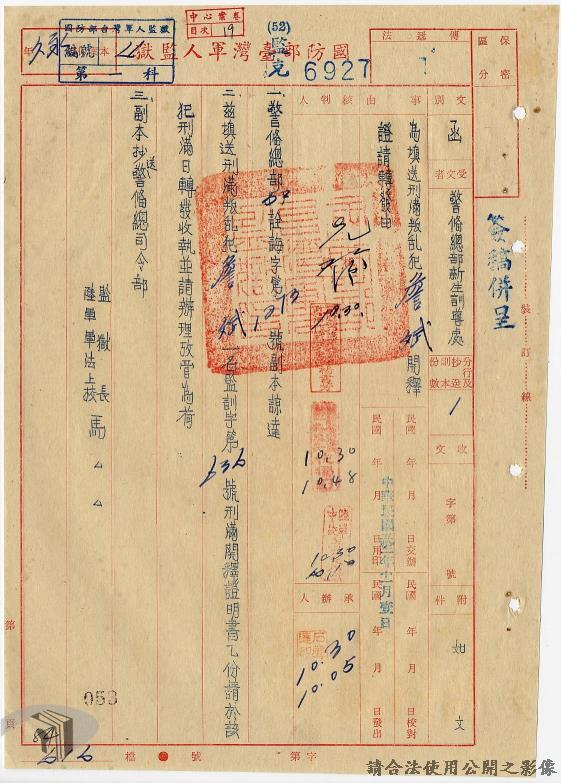 國防部臺灣軍人監獄
國防部台灣軍人監獄
編號
第一科
中心檔卷
目次 19
(52)
監克 6927
傳遞法
保密區分
簽稿併呈
裝訂線
文別 函
受文者 警備總部新生訓導處
分行及抄送副本份數 1
附件 如文
收文 字第 號
民國 年 月 日交辦
民國 年 月 日校對
民國 年 月 日發出
事由 為換送刑滿叛乱犯詹斌開釋證請轉發由
核判人
承辦人
中華民國 年十一月壹日
10.30
10.30
10.48
10.30
10.30
10.05
一、警備總部 詮誨字第1213號副本諒達
二、茲換送刑滿叛乱犯詹斌一名監訓字第636號刑滿開釋證明書乙份請於該犯刑滿日轉發收執並請辦理放晉為荷
三、副本抄送警備總司令部
監獄長
陸軍軍法上校 馬△△
第 頁
053
84
616
字第 號 檔
請合法使用公開之影像